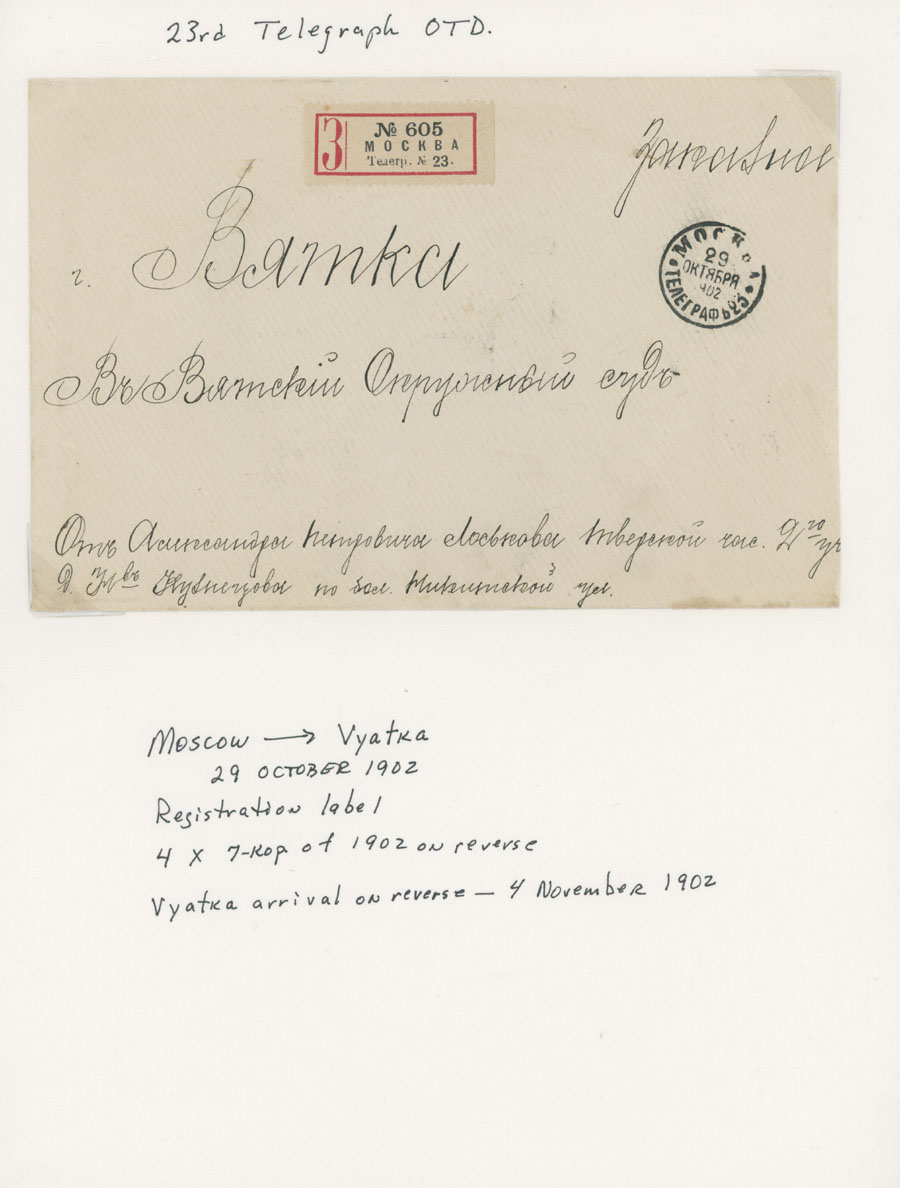 23rd Telegraph OTD.
З
№ 605
МОСКВА
Телегр. № 23.
Заказное
г. Вятка
МОСКВА
29
ОКТЯБРЯ
902
ТЕЛЕГРАФЪ 23
Въ Вятскій Окружный судъ
Отъ Александра Петровича Лоськова Тверской час. 2го уч
д. Кузнецова по бол. Никитской ул.
Moscow → Vyatka
29 OCTOBER 1902
Registration label
4 x 7-kop of 1902 on reverse
Vyatka arrival on reverse — 4 November 1902